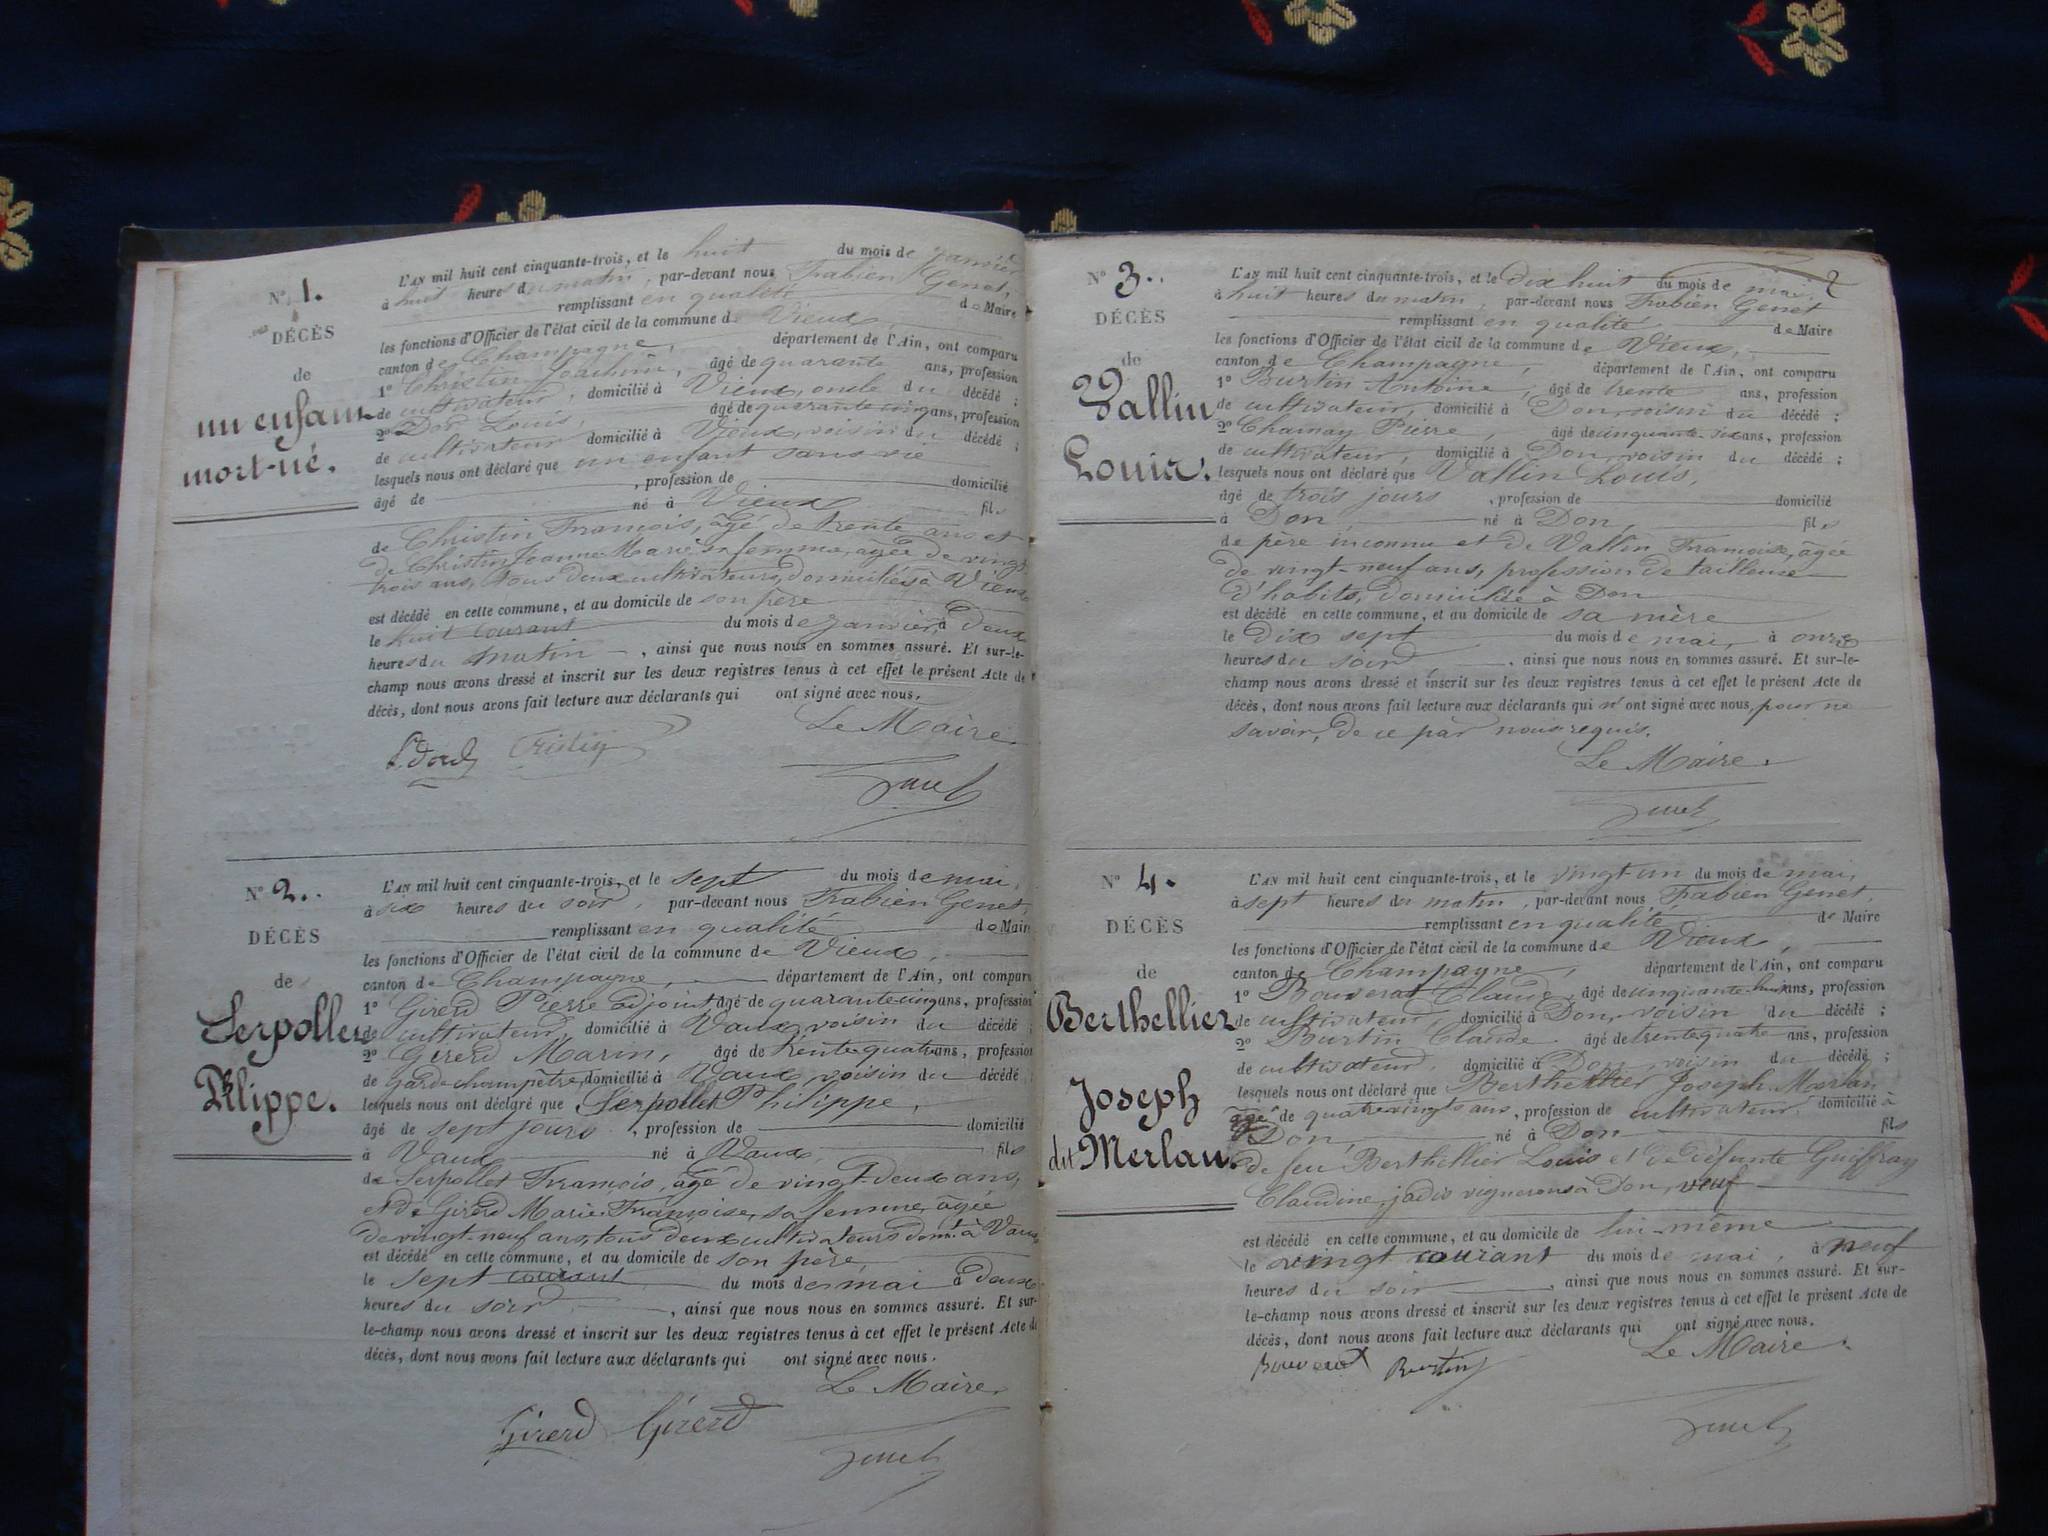 N° 1.
DÉCÈS
de
un enfant
mort-né.
L'AN mil huit cent cinquante-trois, et le huit du mois de janvier
à huit heures du matin, par-devant nous Fabien Genet,
remplissant en qualité de Maire
les fonctions d'Officier de l'état civil de la commune de Vieux,
canton de Champagne, département de l'Ain, ont comparu
1° Christin Joachim, âgé de quarante ans, profession
de cultivateur, domicilié à Vieux, oncle du décédé ;
2° Dod Louis, âgé de quarante cinq ans, profession
de cultivateur domicilié à Vieux, voisin du décédé ;
lesquels nous ont déclaré que un enfant sans vie
âgé de , profession de domicilié
né à Vieux fils
de Christin François, âgé de trente ans et
de Christin Jeanne Marie sa femme, agée de vingt
trois ans, tous deux cultivateurs, domiciliés à Vieux
est décédé en cette commune, et au domicile de son père
le huit courant du mois de janvier, à deux
heures du matin , ainsi que nous nous en sommes assuré. Et sur-le-
champ nous avons dressé et inscrit sur les deux registres tenus à cet effet le présent Acte de
décès, dont nous avons fait lecture aux déclarants qui ont signé avec nous.
Le Maire
N° 2.
DÉCÈS
de
Serpollet
Philippe.
L'AN mil huit cent cinquante-trois, et le sept du mois de mai,
à six heures du soir, par-devant nous Fabien Genet,
remplissant en qualité de Maire
les fonctions d'Officier de l'état civil de la commune de Vieux,
canton de Champagne, département de l'Ain, ont comparu
1° Girerd Pierre adjoint âgé de quarante cinq ans, profession
de cultivateur, domicilié à Vaux, voisin du décédé ;
2° Girerd Marin, âgé de trente quatre ans, profession
de garde champêtre, domicilié à Vaux, voisin du décédé
lesquels nous ont déclaré que Serpollet Philippe,
âgé de sept jours , profession de domicilié
à Vaux né à Vaux, fils
de Serpollet François, âgé de vingt-deux ans,
et de Girerd Marie Françoise, sa femme, agée
de vingt-neuf ans, tous deux cultivateurs domt. à Vaux
est décédé en cette commune, et au domicile de son père
le sept courant du mois de mai à deux
heures du soir , ainsi que nous nous en sommes assuré. Et sur-
le-champ nous avons dressé et inscrit sur les deux registres tenus à cet effet le présent Acte de
décès, dont nous avons fait lecture aux déclarants qui ont signé avec nous.
Le Maire
Girerd Girerd
2
N° 3.
DÉCÈS
de
Vallin
Louis.
L'AN mil huit cent cinquante-trois, et le dix huit du mois de mai,
à huit heures du matin, par-devant nous Fabien Genet
remplissant en qualité de Maire
les fonctions d'Officier de l'état civil de la commune de Vieux,
canton de Champagne, département de l'Ain, ont comparu
1° Burtin Antoine, âgé de trente ans, profession
de cultivateur, domicilié à Don, voisin du décédé ;
2° Charnay Pierre, âgé de cinquante-six ans, profession
de cultivateur, domicilié à Don, voisin du décédé ;
lesquels nous ont déclaré que Vallin Louis,
âgé de trois jours , profession de domicilié
à Don, né à Don, fils
de père inconnu et de Vallin Françoise, âgée
de vingt-neuf ans, profession de tailleuse
d'habits, domiciliée à Don
est décédé en cette commune, et au domicile de sa mère
le dix sept du mois de mai, à onze
heures du soir , ainsi que nous nous en sommes assuré. Et sur-le-
champ nous avons dressé et inscrit sur les deux registres tenus à cet effet le présent Acte de
décès, dont nous avons fait lecture aux déclarants qui n'ont signé avec nous, pour ne
savoir, de ce par nous requis.
Le Maire.
Genet
N° 4.
DÉCÈS
de
Berthellier
Joseph
dit Merlan.
L'AN mil huit cent cinquante-trois, et le vingt un du mois de mai,
à sept heures du matin, par-devant nous Fabien Genet,
remplissant en qualité de Maire
les fonctions d'Officier de l'état civil de la commune de Vieux,
canton de Champagne, département de l'Ain, ont comparu
1° Bouverat Claude, âgé de cinquante-huit ans, profession
de cultivateur, domicilié à Don, voisin du décédé ;
2° Burtin Claude âgé de trente quatre ans, profession
de cultivateur, domicilié à Don, voisin du décédé ;
lesquels nous ont déclaré que Berthellier Joseph Merlan
âgé de quatre vingts ans, profession de cultivateur, domicilié à
Don, né à Don fils
de feu Berthellier Louis et de défunte Guiffray
Claudine, jadis vignerons à Don, veuf
est décédé en cette commune, et au domicile de lui-même
le vingt courant du mois de mai, à neuf
heures du soir , ainsi que nous nous en sommes assuré. Et sur-
le-champ nous avons dressé et inscrit sur les deux registres tenus à cet effet le présent Acte de
décès, dont nous avons fait lecture aux déclarants qui ont signé avec nous.
Le Maire
Bouverat Burtin